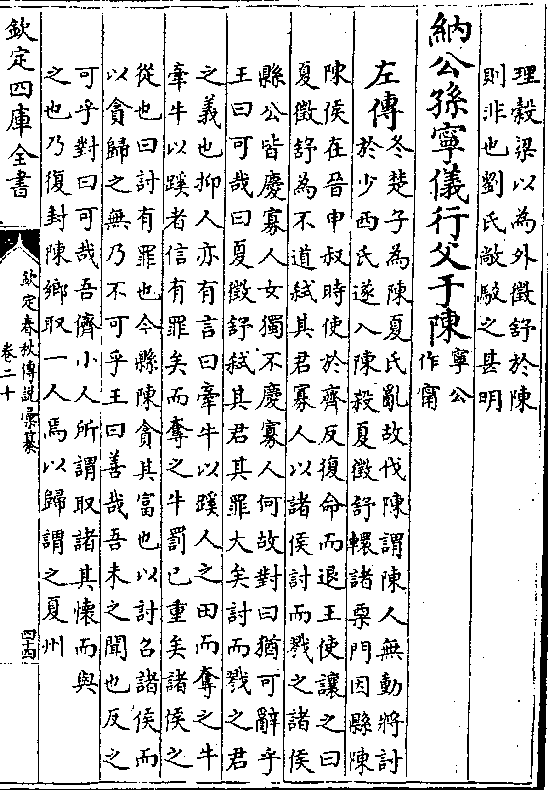 理穀梁以為外徵舒於陳
則非也劉氏敞駁之甚明
納公孫寧儀行父于陳
寧公
作甯
左傳
冬楚子為陳夏氏亂故伐陳謂陳人無動將討
於少西氏遂入陳殺夏徵舒轘諸栗門因縣陳
陳侯在晉申叔時使於齊反復命而退王使讓之曰
夏徵舒為不道弑其君寡人以諸侯討而戮之諸侯
縣公皆慶寡人女獨不慶寡人何故對曰猶可辭乎
王曰可哉曰夏徵舒弑其君其罪大矣討而戮之君
之義也抑人亦有言曰牽牛以蹊人之田而奪之牛
牽牛以蹊者信有罪矣而奪之牛罰已重矣諸侯之
從也曰討有罪也今縣陳貪其富也以討召諸侯而
以貪歸之無乃不可乎王曰善哉吾未之聞也反之
可乎對曰可哉吾儕小人所謂取諸其懷而與
之也乃復封陳鄉取一人焉以歸謂之夏州
欽定四庫全書
欽定春秋傳說彙纂
卷二十
四十四